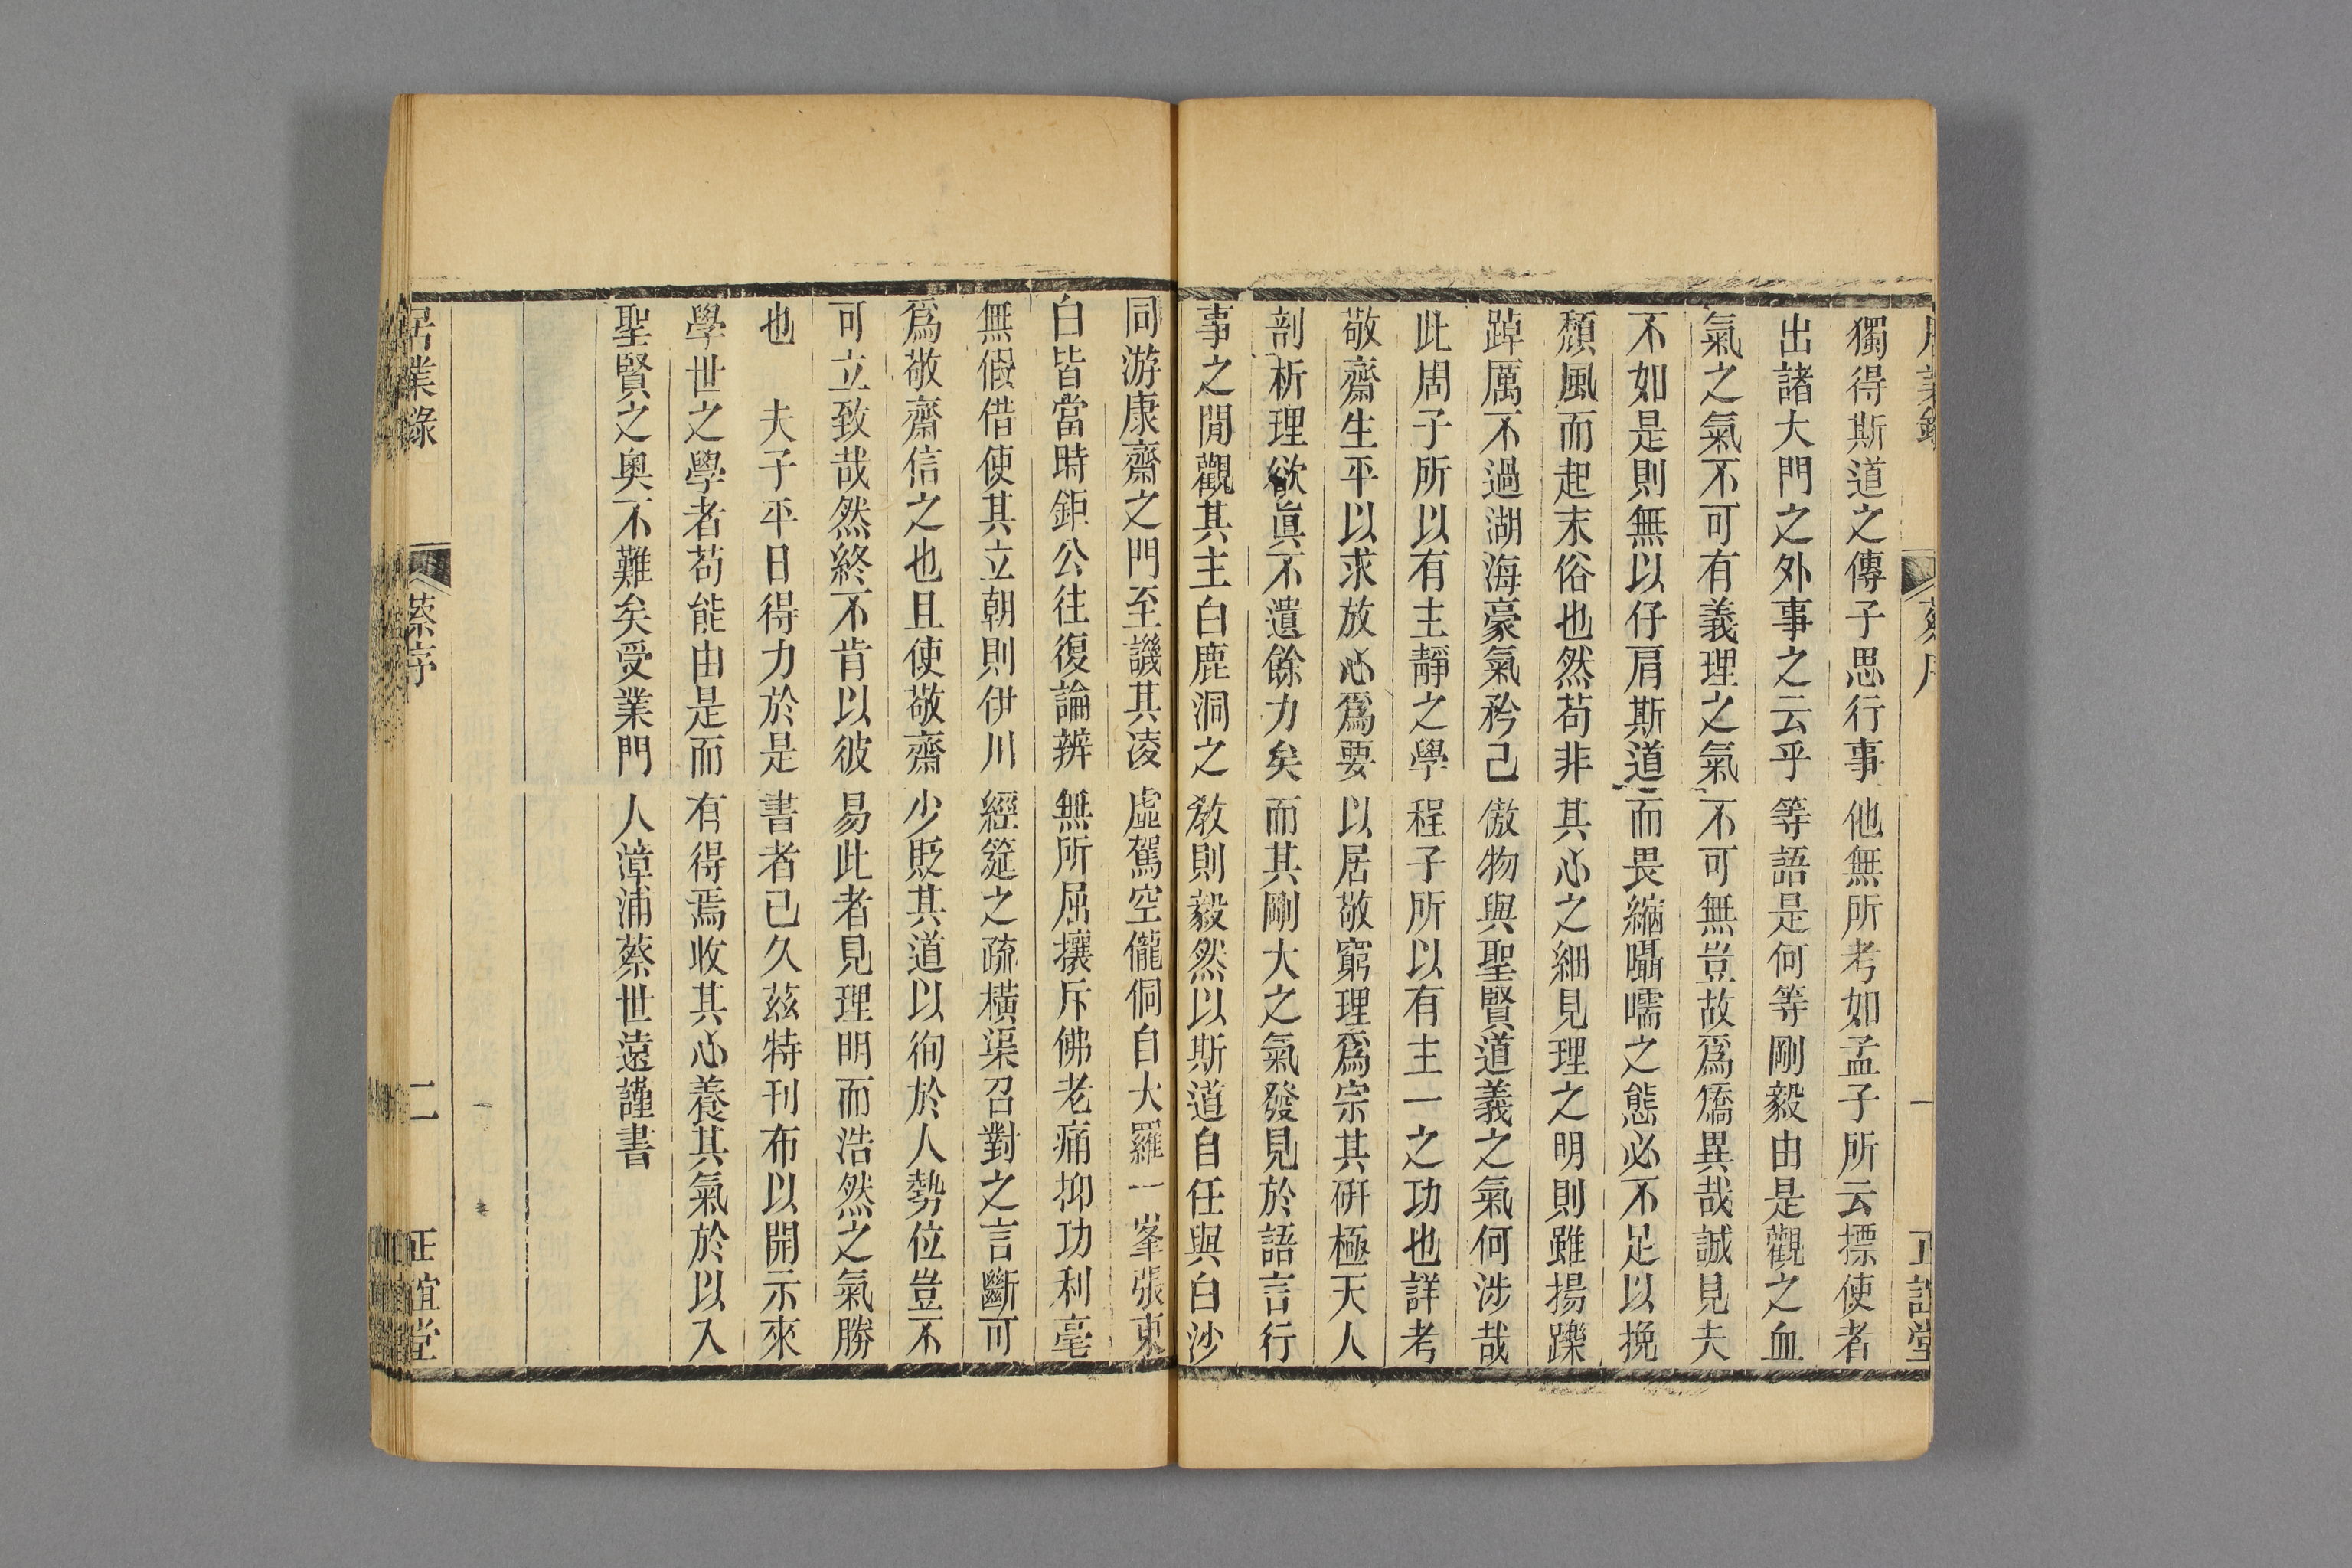 獨得斯道之傳子思行事他無所考如孟子所云摽使者
出諸大門之外事之云乎等語是何等剛毅由是觀之血
氣之氣不可有義理之氣不可無豈故爲矯異哉誠見夫
不如是則無以仔肩斯道而畏縮囁嚅之態必不足以挽
頹風而起末俗也然苟非其心之細見理之明則雖揚躒
踔厲不過湖海豪氣矜己傲物與聖賢道義之氣何涉哉
此周子所以有主靜之學程子所以有主一之功也詳考
敬齋生平以求放心爲要以居敬窮理爲宗其研極天人
剖析理欲眞不遺餘力矣而其剛大之氣發見於語言行
事之閒觀其主白鹿洞之敎則毅然以斯道自任與白沙
同游康齋之門至譏其凌虛駕空儱侗自大羅一峯張東
白皆當時鉅公往復論辨無所屈攘斥佛老痛抑功利毫
無假借使其立朝則伊川經筵之疏橫渠召對之言斷可
爲敬齋信之也且使敬齋少貶其道以徇於人勢位豈不
可立致哉然終不肯以彼易此者見理明而浩然之氣勝
也　夫子平日得力於是書者已久茲特刊布以開示來
學世之學者苟能由是而有得焉收其心養其氣於以入
聖賢之奧不難矣受業門人漳浦蔡世遠謹書
居業錄　蔡序　二　正誼堂